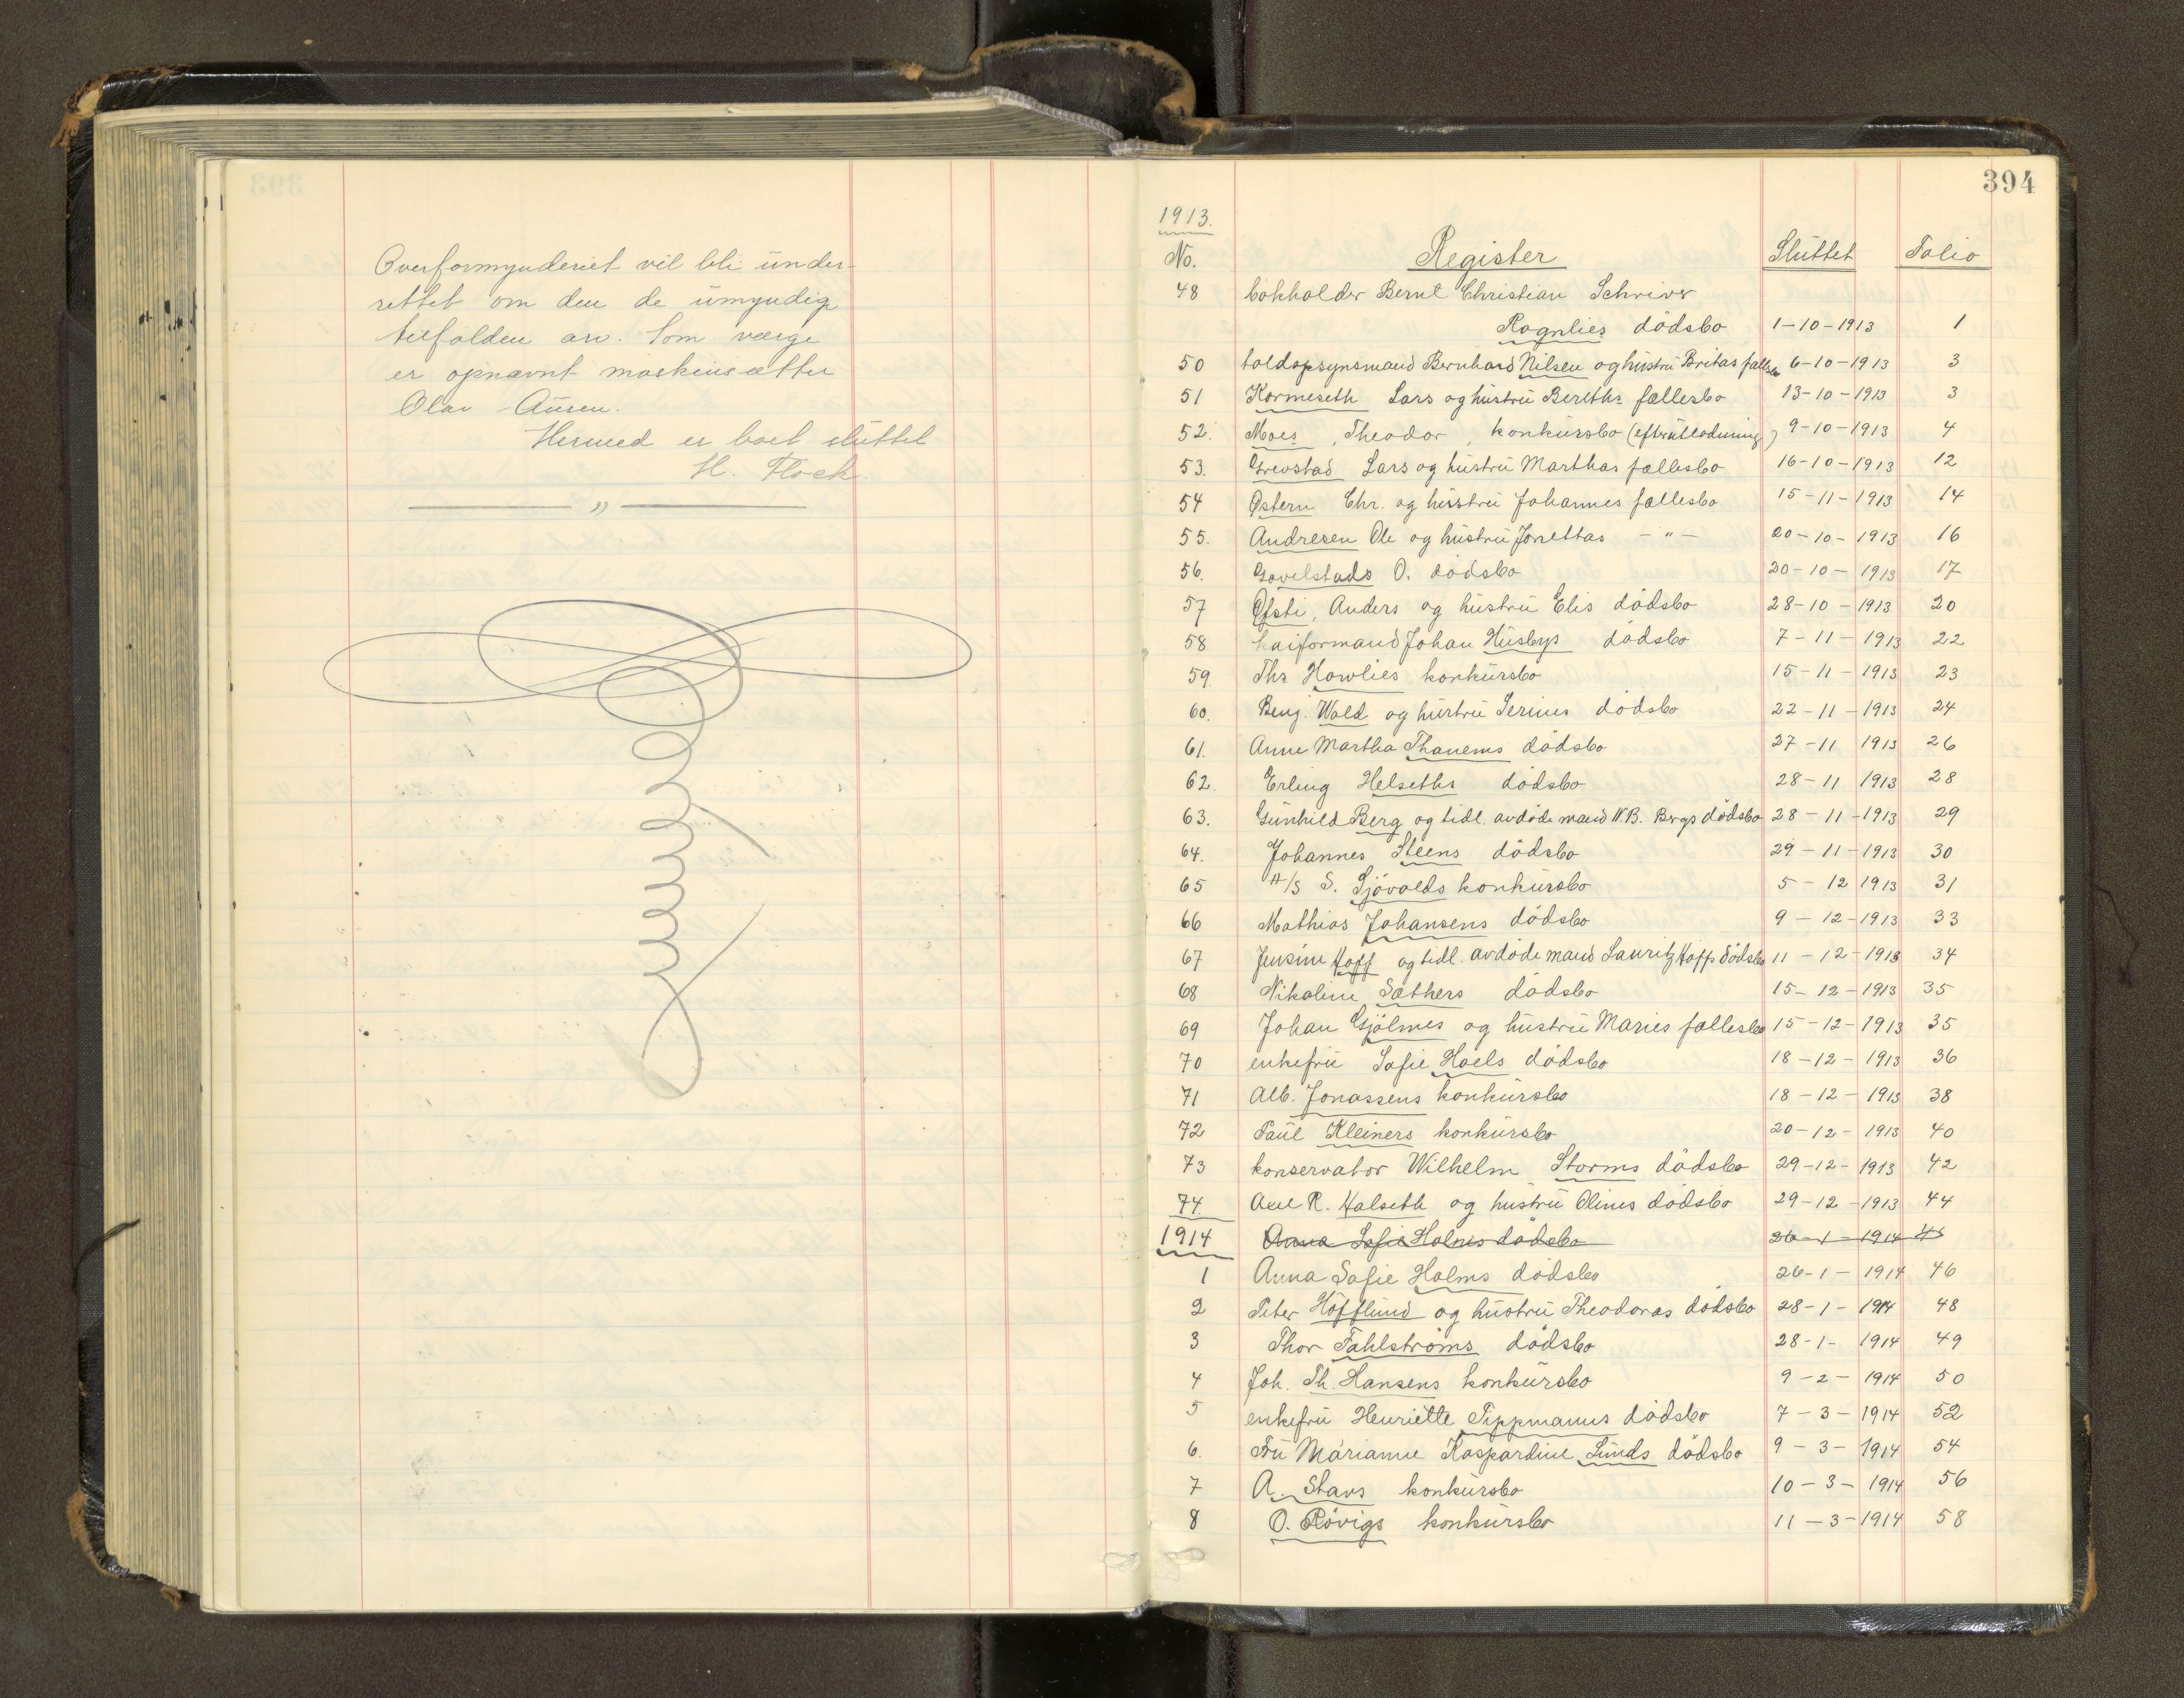 Overformynderiet vil bli under-
rettet om den de umyndige
tilfaldne arv. Som værge
er opnævnt maskinsætter
Olav Aunen.
Hermed er boet sluttet
H. Flock
394
1913.
No. Register Sluttet Folio
48 bokholder Bernt Christian Schriver
Rognlies dödsbo 1-10-1913 1
50 toldopsynsmand Bernhard Nilsen og hustru Britas fællesbo 6-10-1913 3
51 Kormeseth Lars og hustru Bereths fællesbo 13-10-1913 3
52. Moes, Theodor, konkursbo (efterutlodning) 9-10-1913 4
53. Grevstad Lars og hustru Marthas fællesbo 16-10-1913 12
54 Østern Chr. og hustru Johannes fællesbo 15-11-1913 14
55. Andresen Ole og hustru Jonettas - " - 20-10-1913 16
56. Gavelstads O. dödsbo 20-10-1913 17
57 Øfsti, Anders og hustru Elis dödsbo 28-10-1913 20
58 kaiformand Johan Husbys dödsbo 7-11-1913 22
59. Thr Howlies konkursbo 15-11-1913 23
60. Benj. Wold og hustru Serines dödsbo 22-11-1913 24
61. Anne Martha Thanems dödsbo 27-11 1913 26
62. Erling Helseths dödsbo 28-11 1913 28
63. Gunhild Berg og tidl. avdöde mand N.B. Bergs dödsbo 28-11-1913 29
64. Johannes Steens dödsbo 29-11-1913 30
65 A/S S. Sjövolds konkursbo 5-12 1913 31
66 Mathias Johansens dödsbo 9-12-1913 33
67 Jensine Hoff og tidl. avdöde mand Lauritz Hoffs dödsbo 11-12-1913 34
68 Nikoline Sæthers dödsbo 15-12-1913 35
69 Johan Gjölmes og hustru Maries fællesbo 15-12-1913 35
70 enkefru Sofie Hoels dödsbo 18-12-1913 36
71 Alb. Jonassens konkursbo 18-12-1913 38
72 Paul Kleiners konkursbo 20-12-1913 40
73 konservator Wilhelm Storms dödsbo 29-12-1913 42
74 R. Halseth og hustru Olines dödsbo 29-12-1913 44
1914 Anna Sofie Holms dödsbo 26-1-1914
1 Anna Sofie Holms dödsbo 26-1-1914 46
2 Peter Höfflund og hustru Theodoras dödsbo 28-1-1914 48
3 Thor Fahlströms dödsbo 28-1-1914 49
4 Joh. Th. Hansens konkursbo 9-2-1914 50
5 enkefru Henriette Tippmanns dödsbo 7-3-1914 52
6. Fru Marianne Kaspardine Lunds dödsbo 9-3-1914 54
7 A. Stavs konkursbo 10-3-1914 56
8 O. Rövigs konkursbo 11-3-1914 58